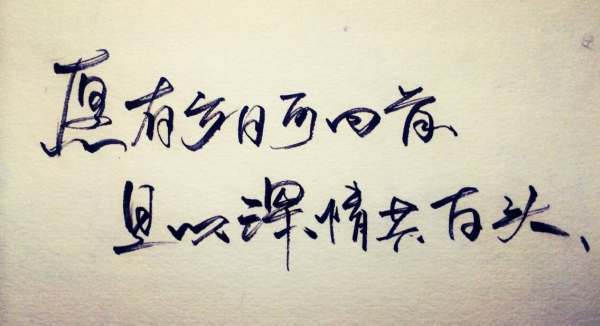 愿有岁月可回首
且以深情共白头、